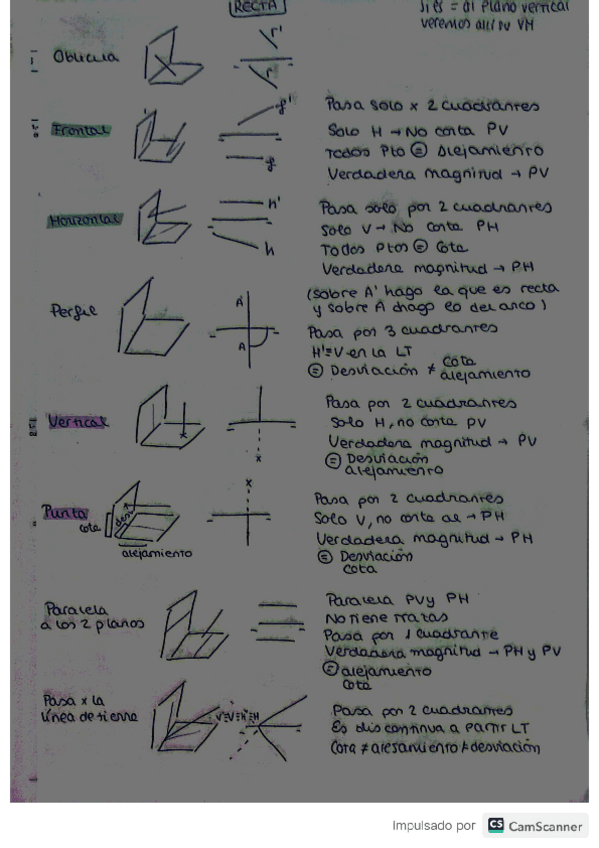 RECTA
si es = al plano vertical
veremos allí tu VM
Oblicua
r'
r
Frontal
f'
f
Pasa solo x 2 cuadrantes
Solo H → No corta PV
Todos Pto = Alejamiento
Verdadera magnitud → PV
Horizontal
h'
h
Pasa solo por 2 cuadrantes
Solo V → No corta PH
Todos Ptos = Cota
Verdadera magnitud → PH
Perfil
A'
A
(sobre A' hago la que es recta
y sobre A chago lo del arco)
Pasa por 3 cuadrantes
H'≡V en la LT
= Desviación ≠ cota
alejamiento
Vertical
Pasa por 2 cuadrantes
Solo H, no corta PV
Verdadera magnitud → PV
= Desviación
alejamiento
Punta
cota
desv
alejamiento
Pasa por 2 cuadrantes
Solo V, no corta al → PH
Verdadera magnitud → PH
= Desviación
cota
Paralela
a los 2 planos
Paralela PV y PH
No tiene trazas
Pasa por 1 cuadrante
Verdadera magnitud → PH y PV
= alejamiento
cota
Pasa x la
línea de tierra
V'≡V≡H'≡H
Pasa por 2 cuadrantes
Es discontinua a partir LT
Cota ≠ alejamiento ≠ desviación
Impulsado por CS CamScanner